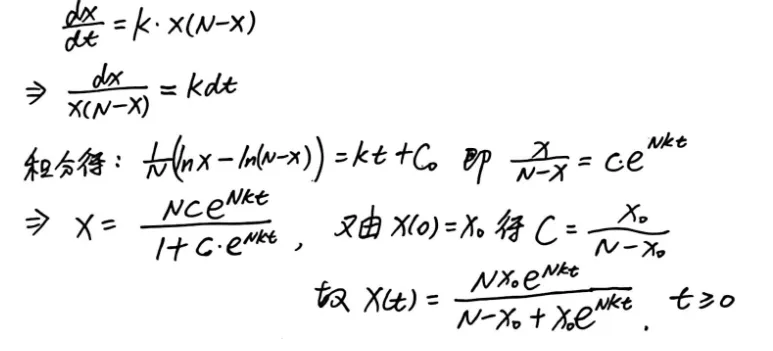 dx/dt = k · x(N-x)
⇒ dx/x(N-x) = kdt
积分得: 1/N(lnx - ln(N-x)) = kt + C₀ 即 x/N-x = c·e^Nkt
⇒ x = NCe^Nkt/1+C·e^Nkt , 又由 x(0)=x₀ 得 C = x₀/N-x₀
故 x(t) = Nx₀e^Nkt/N-x₀+x₀e^Nkt . t≥0